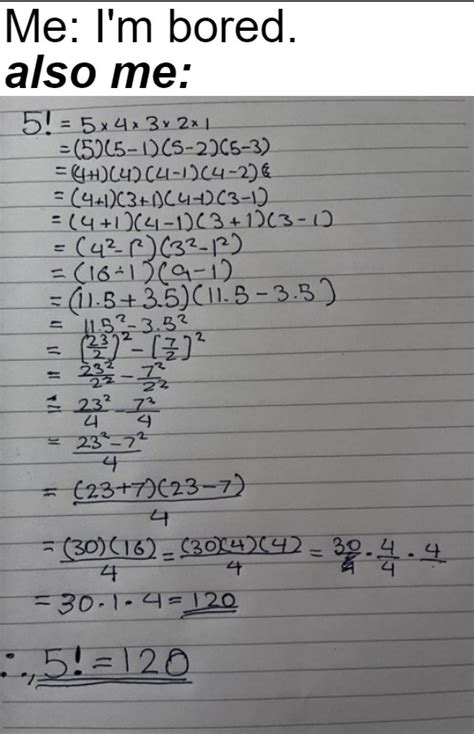 Me: I'm bored.
also me:
5! = 5 × 4 × 3 × 2 × 1
= (5)(5-1)(5-2)(5-3)
= (4+1)(4)(4-1)(4-2)
= (4+1)(3+1)(4-1)(3-1)
= (4+1)(4-1)(3+1)(3-1)
= (4²-1²)(3²-1²)
= (16-1)(9-1)
= (11.5+3.5)(11.5-3.5)
= 11.5² - 3.5²
= [23/2]² - [7/2]²
= 23²/2² - 7²/2²
= 23²/4 - 7²/4
= 23²-7²/4
= (23+7)(23-7)/4
= (30)(16)/4 = (30)(4)(4)/4 = 30 · 4/4 · 4
= 30·1·4 = 120
∴, 5! = 120